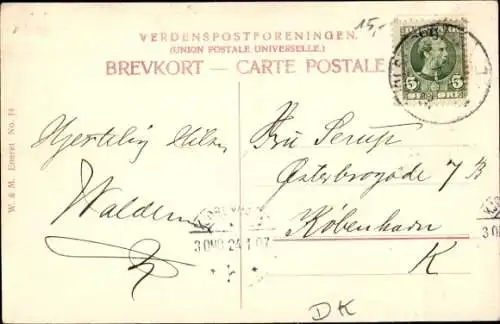 15,-
VERDENSPOSTFORENINGEN.
(UNION POSTALE UNIVERSELLE.)
BREVKORT — CARTE POSTALE
5 5
W. & M. Eneret No. 14
Hjertelig Hilsen
Waldemar
Fru Serup
Østerbrogade 7 B
København
K
DK